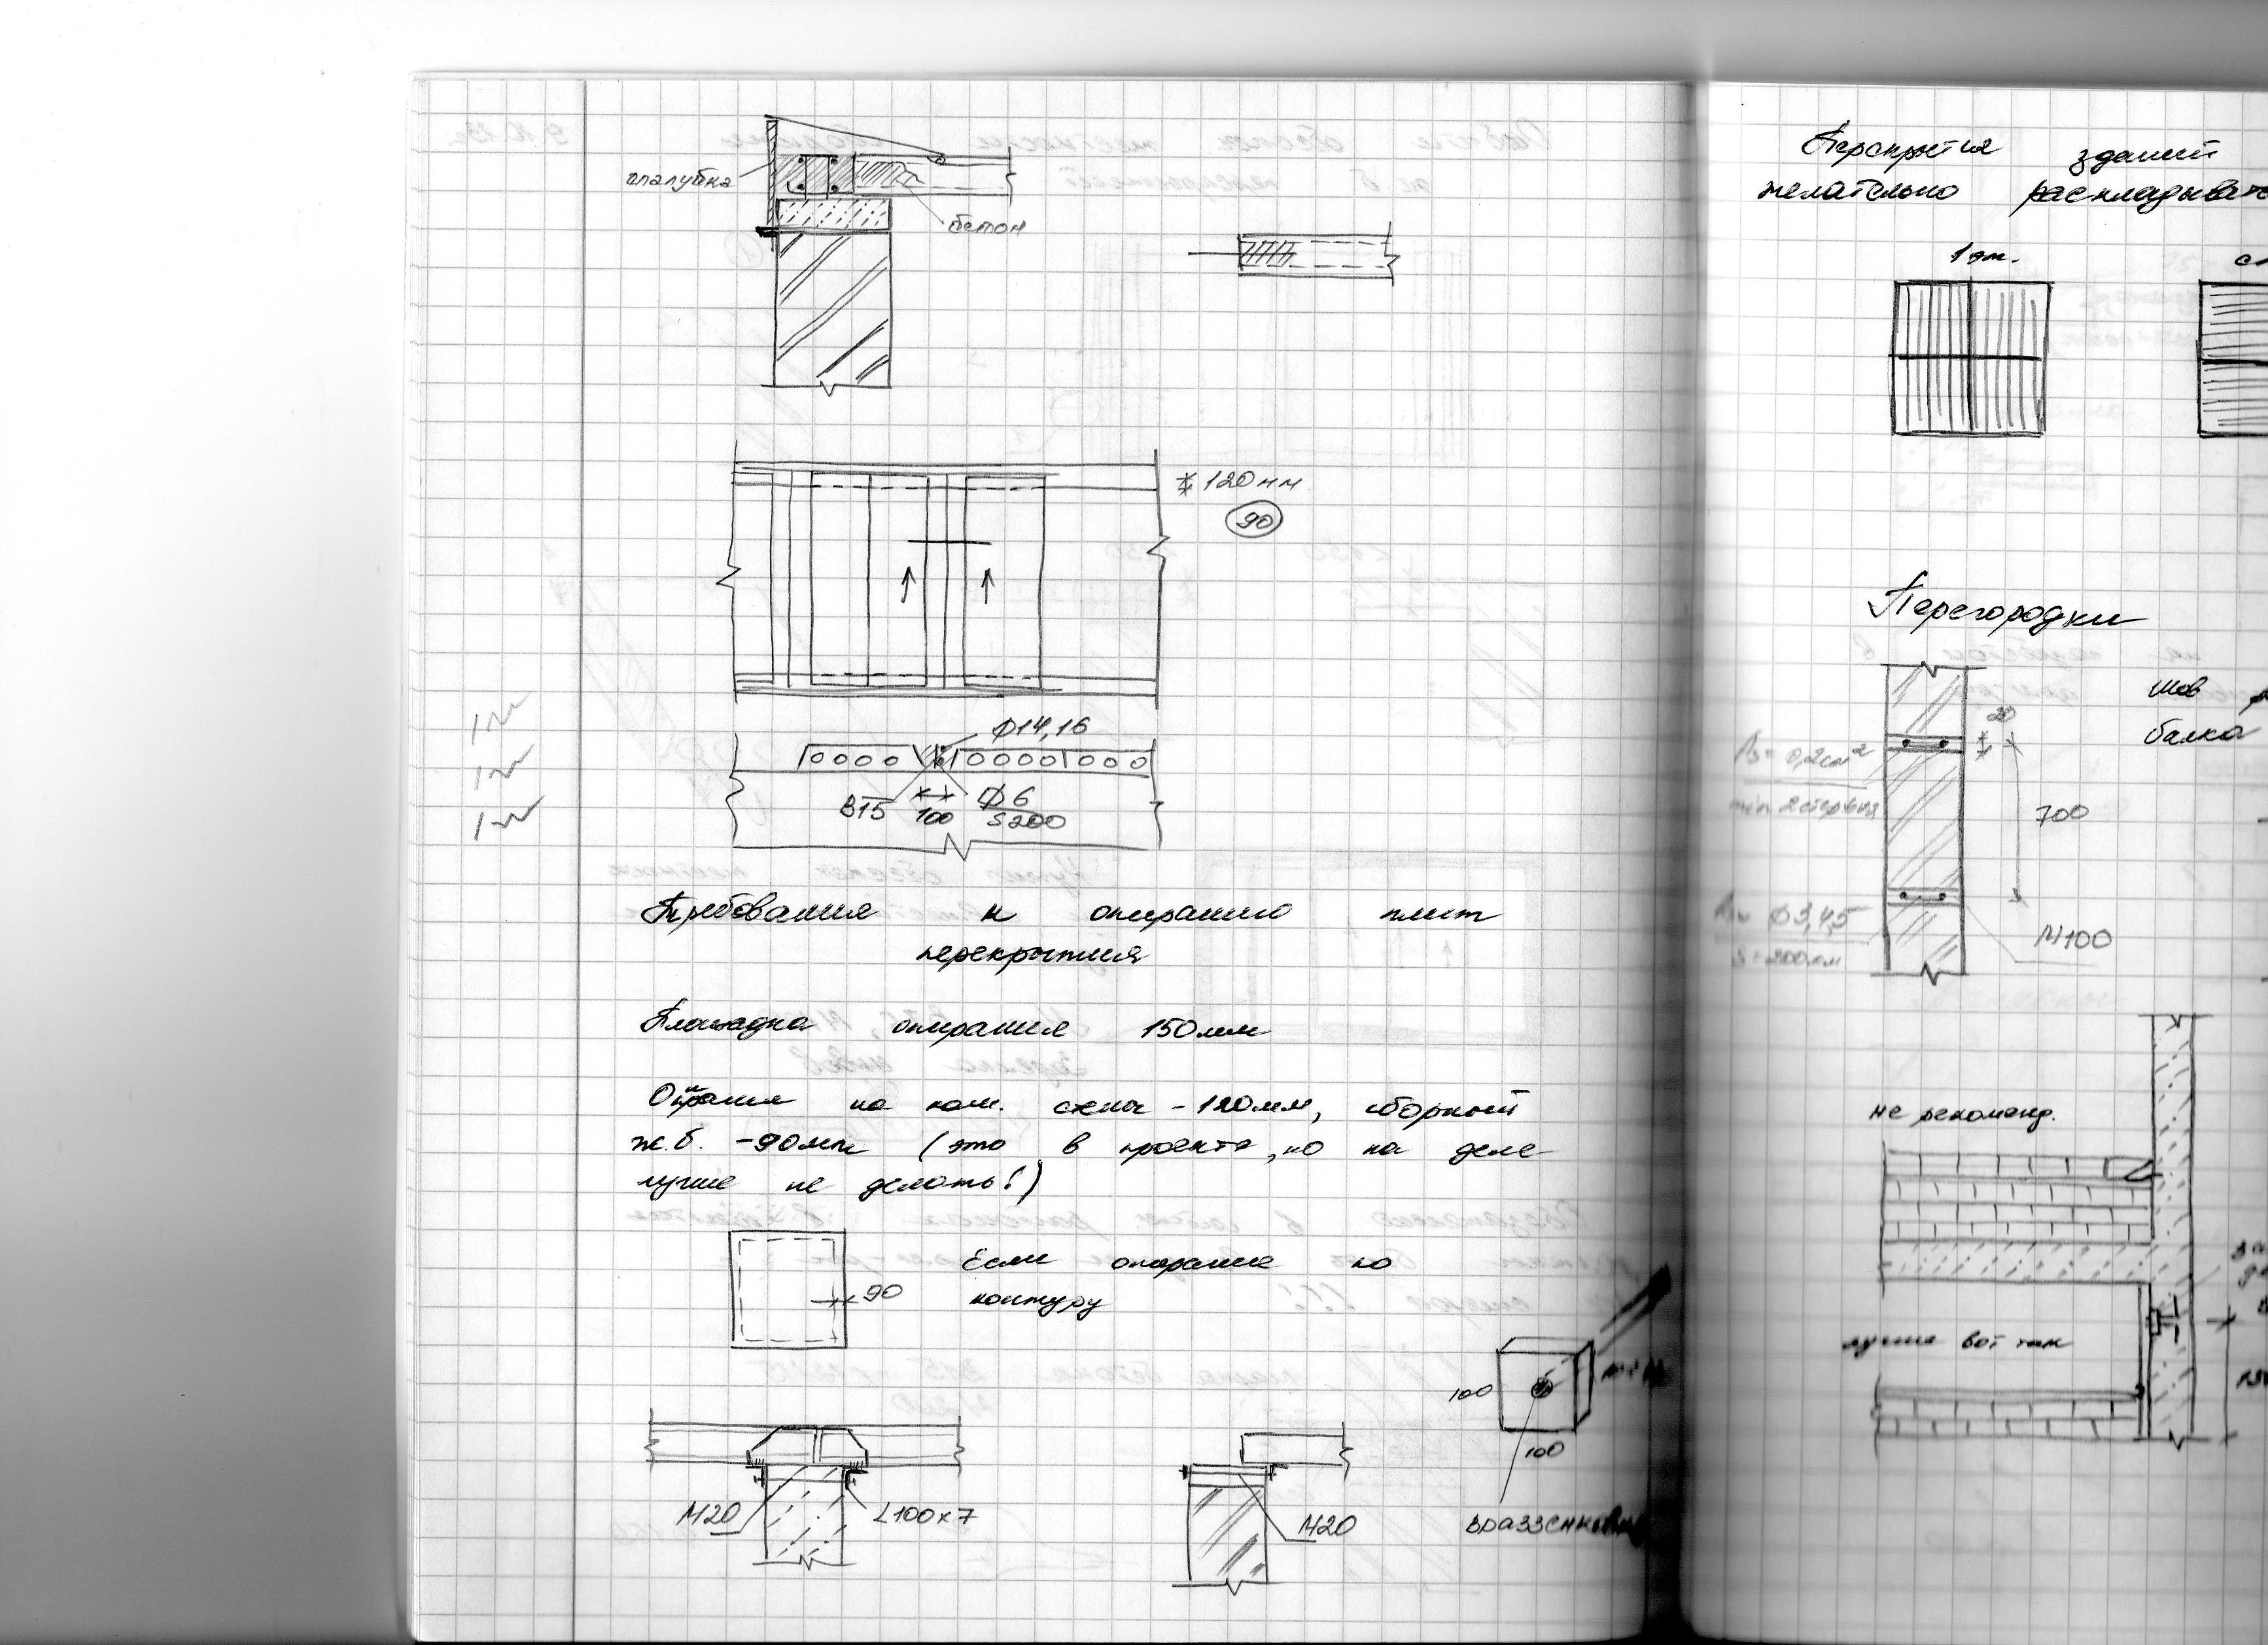 опалубка
бетон
120мм
90
Ф14,16
В15
100
Ф6
S200
Требования к опиранию плит
перекрытия
Площадка опирания 150мм
Опирания на кам. стены - 120мм, сборный
ж.б. - 90мм (это в проекте, но на деле
лучше не делать!)
90
Если опирание по
контуру
100
100
М20
L100x7
М20
Перекрытия зданий
желательно раскладывать
1 эт.
Перегородки
Шов
балка
20
As = 0,2см²
min 2 стержня
700
Ф3,4,5
S = 200мм
М100
не рекоменд.
лучше вот так